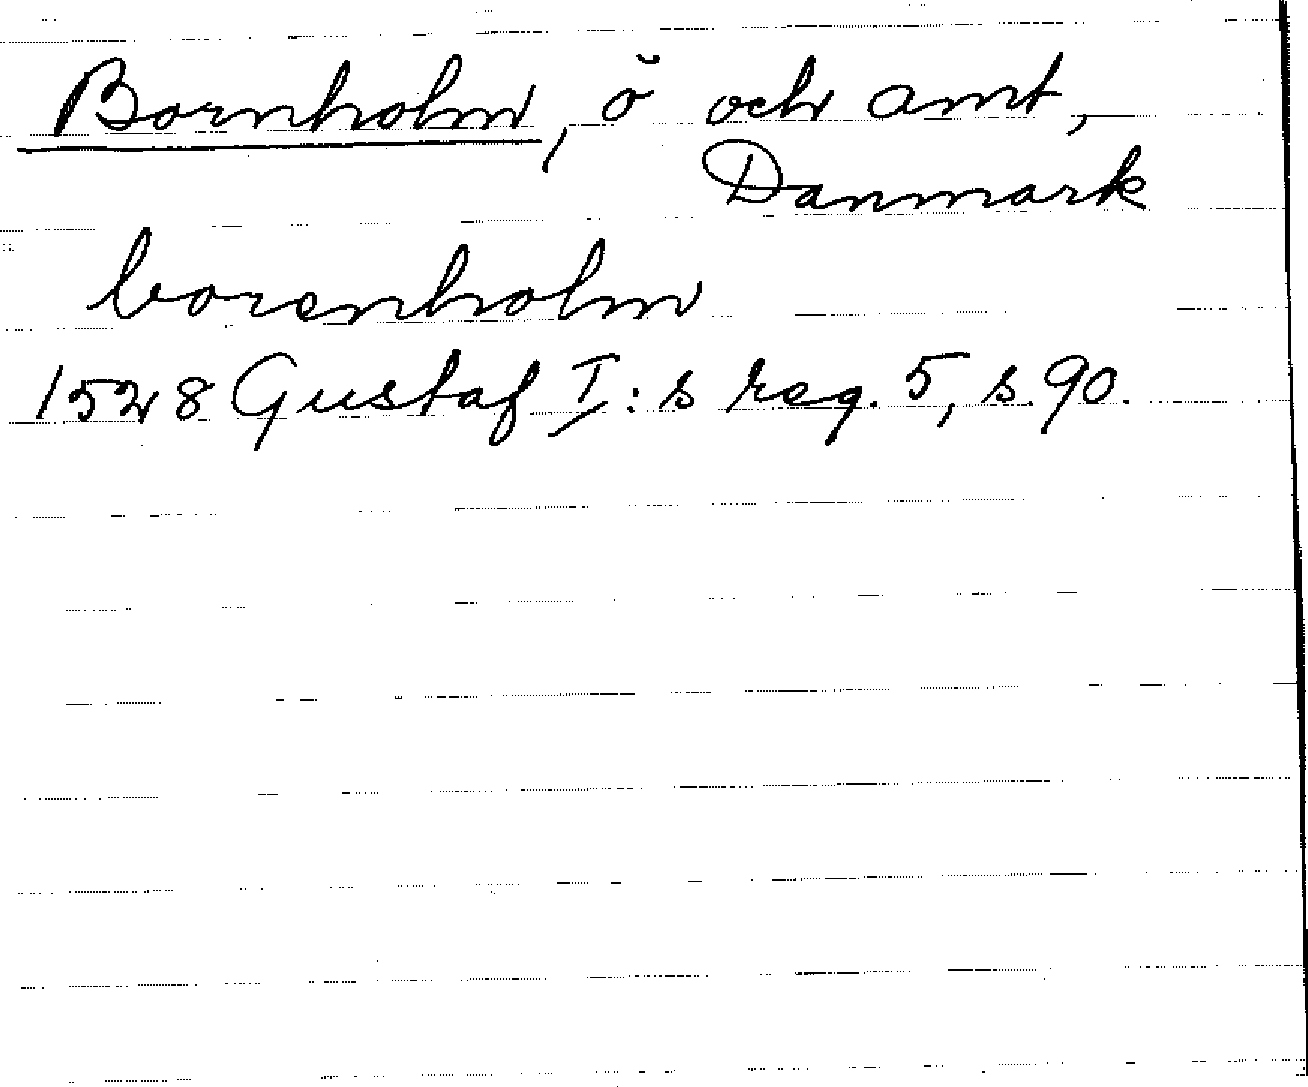 Bornholm, ö och amt,
Danmark
borenholm
1528 Gustaf I:s reg. 5, s. 90.